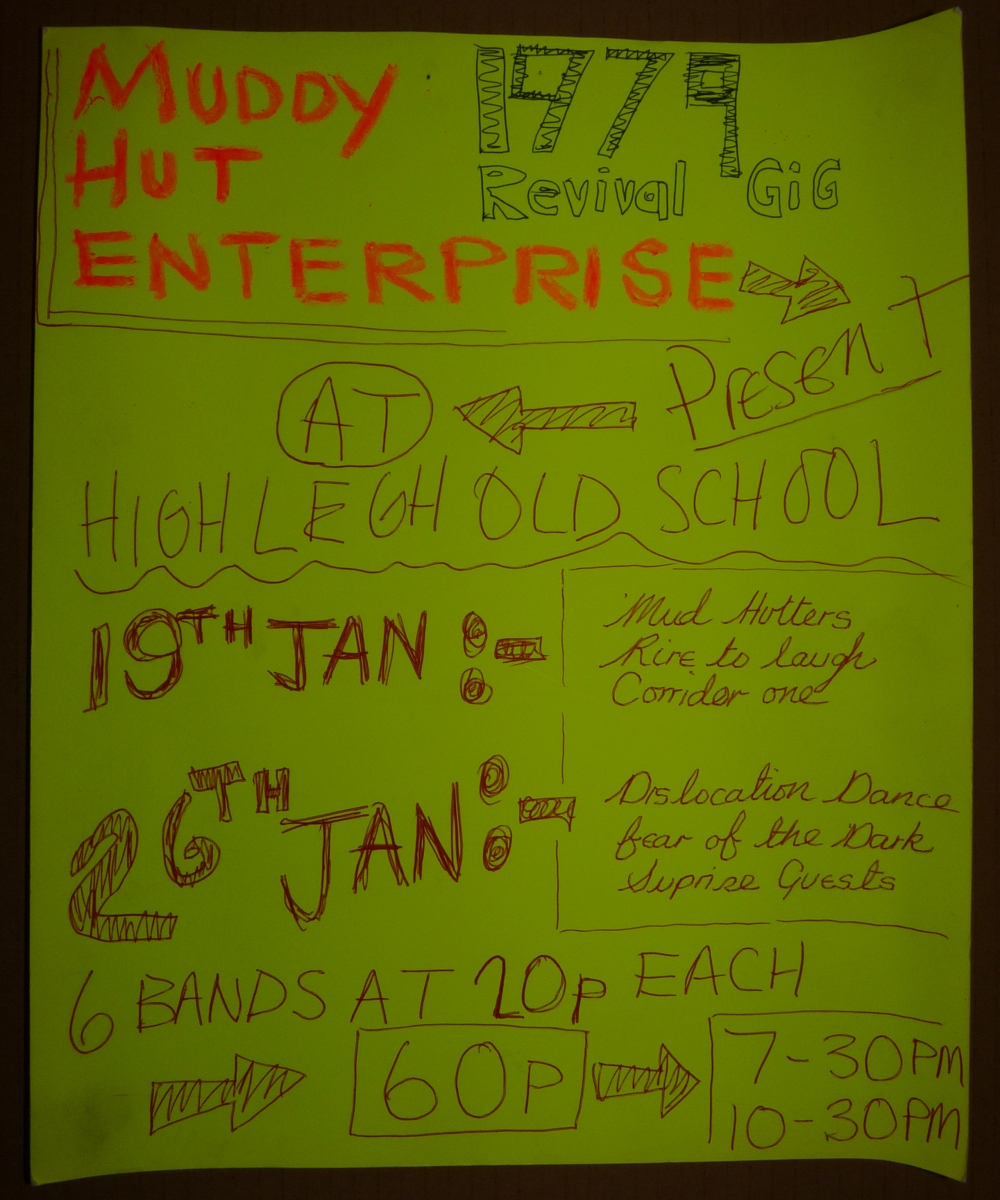 MUDDY
HUT
ENTERPRISE
1979
Revival GiG
PresenT
AT
HIGH LEGH OLD SCHOOL
19TH JAN :-
Mud Hutters
Rire to laugh
Corrider one
26TH JAN :-
Dislocation Dance
fear of the Dark
Suprise Guests
6 BANDS AT 20p EACH
60P
7-30PM
10-30PM